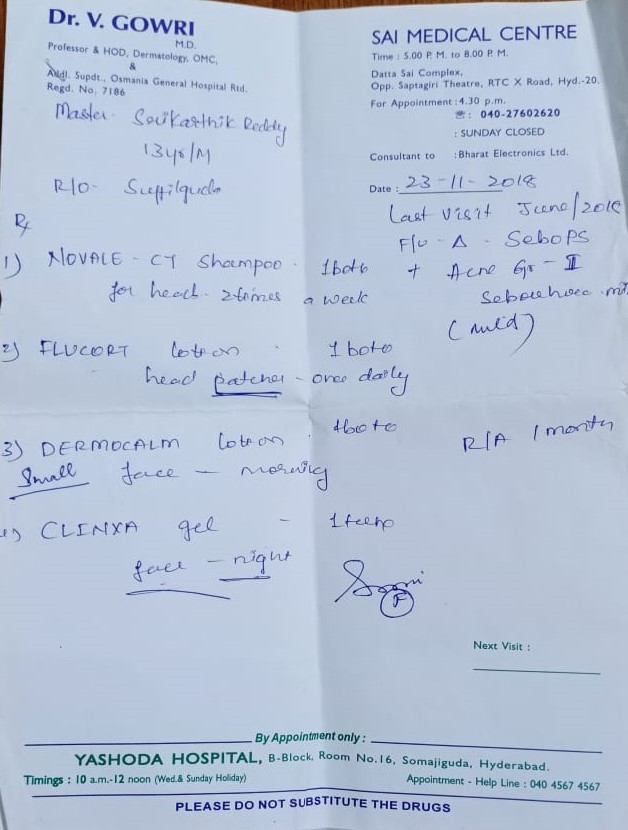 Dr. V. GOWRI
M.D.
Professor & HOD, Dermatology, OMC,
&
Addl. Supdt., Osmania General Hospital Rtd.
Regd. No. 7186
SAI MEDICAL CENTRE
Time : 5.00 P. M. to 8.00 P. M.
Datta Sai Complex,
Opp. Saptagiri Theatre, RTC X Road, Hyd.-20.
For Appointment : 4.30 p.m.
☎: 040-27602620
: SUNDAY CLOSED
Consultant to : Bharat Electronics Ltd.
Date : 23-11-2018
Master. Saikarthik Reddy
13yr/M
R/O-
Last visit June/
F/u - Δ - SeboPS
+ Acne Gr - II
(mild)
Rx
1) NOVALE - CT Shampoo. 1 bot
for head. 2 times a week
2) FLUCORT lotion 1 bot
head patches - once daily
3) DERMOCALM lotion 1 bot
Small face - morning
R/A 1 month
4) CLINXA gel - 1
face - night
F
Next Visit :
By Appointment only :
YASHODA HOSPITAL, B-Block, Room No.16, Somajiguda, Hyderabad.
Timings : 10 a.m.-12 noon (Wed.& Sunday Holiday) Appointment - Help Line : 040 4567 4567
PLEASE DO NOT SUBSTITUTE THE DRUGS